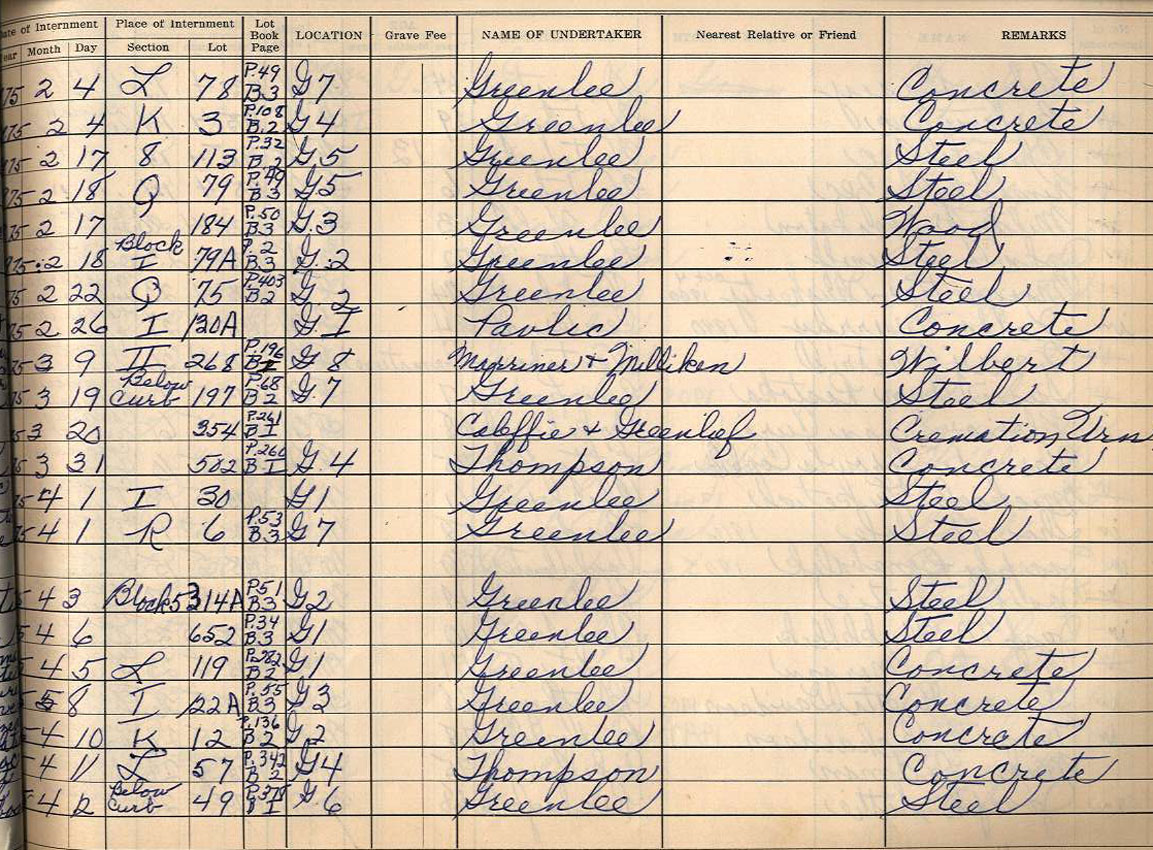 Date of Internment Place of Internment Lot Book Page LOCATION Grave Fee NAME OF UNDERTAKER Nearest Relative or Friend REMARKS
Year Month Day Section Lot
75 2 4 L 78 P.49 B.3 G7 Greenlee Concrete
75 2 4 K 3 P.108 B.2 G4 Greenlee Concrete
75 2 17 8 113 P.32 B.2 G.5 Greenlee Steel
75 2 18 Q 79 P.49 B3 G5 Greenlee Steel
75 2 17 184 P.50 B3 G.3 Greenlee Wood
75 2 18 Block I 79A P.2 B.3 G.2 Greenlee Steel
75 2 22 Q 75 P.403 B2 G.2 Greenlee Steel
75 2 26 I 130A G.I Pavlic Concrete
75 3 9 II 268 P.196 B I G 8 Marriner & Milliken Wilbert
75 3 19 Below Curb 197 P.68 B2 G.7 Greenlee Steel
3 20 354 P.261 B I Coleffie & Greenleaf Cremation Urn
75 3 31 502 P.266 B I G.4 Thompson Concrete
75 4 1 I 30 G1 Greenlee Steel
75 4 1 R 6 P.53 B.3 G7 Greenlee Steel
5 4 3 Block 5 314A P.51 B3 G2 Greenlee Steel
5 4 6 652 P.34 B.3 G1 Greenlee Steel
5 4 5 L 119 P.282 B2 G1 Greenlee Concrete
8 I 122A P.55 B.3 G3 Greenlee Concrete
4 10 K 12 P.136 B2 G2 Greenlee Concrete
4 11 L 57 P.342 B2 G4 Thompson Concrete
4 12 Below Curb 49 I G.6 Greenlee Steel